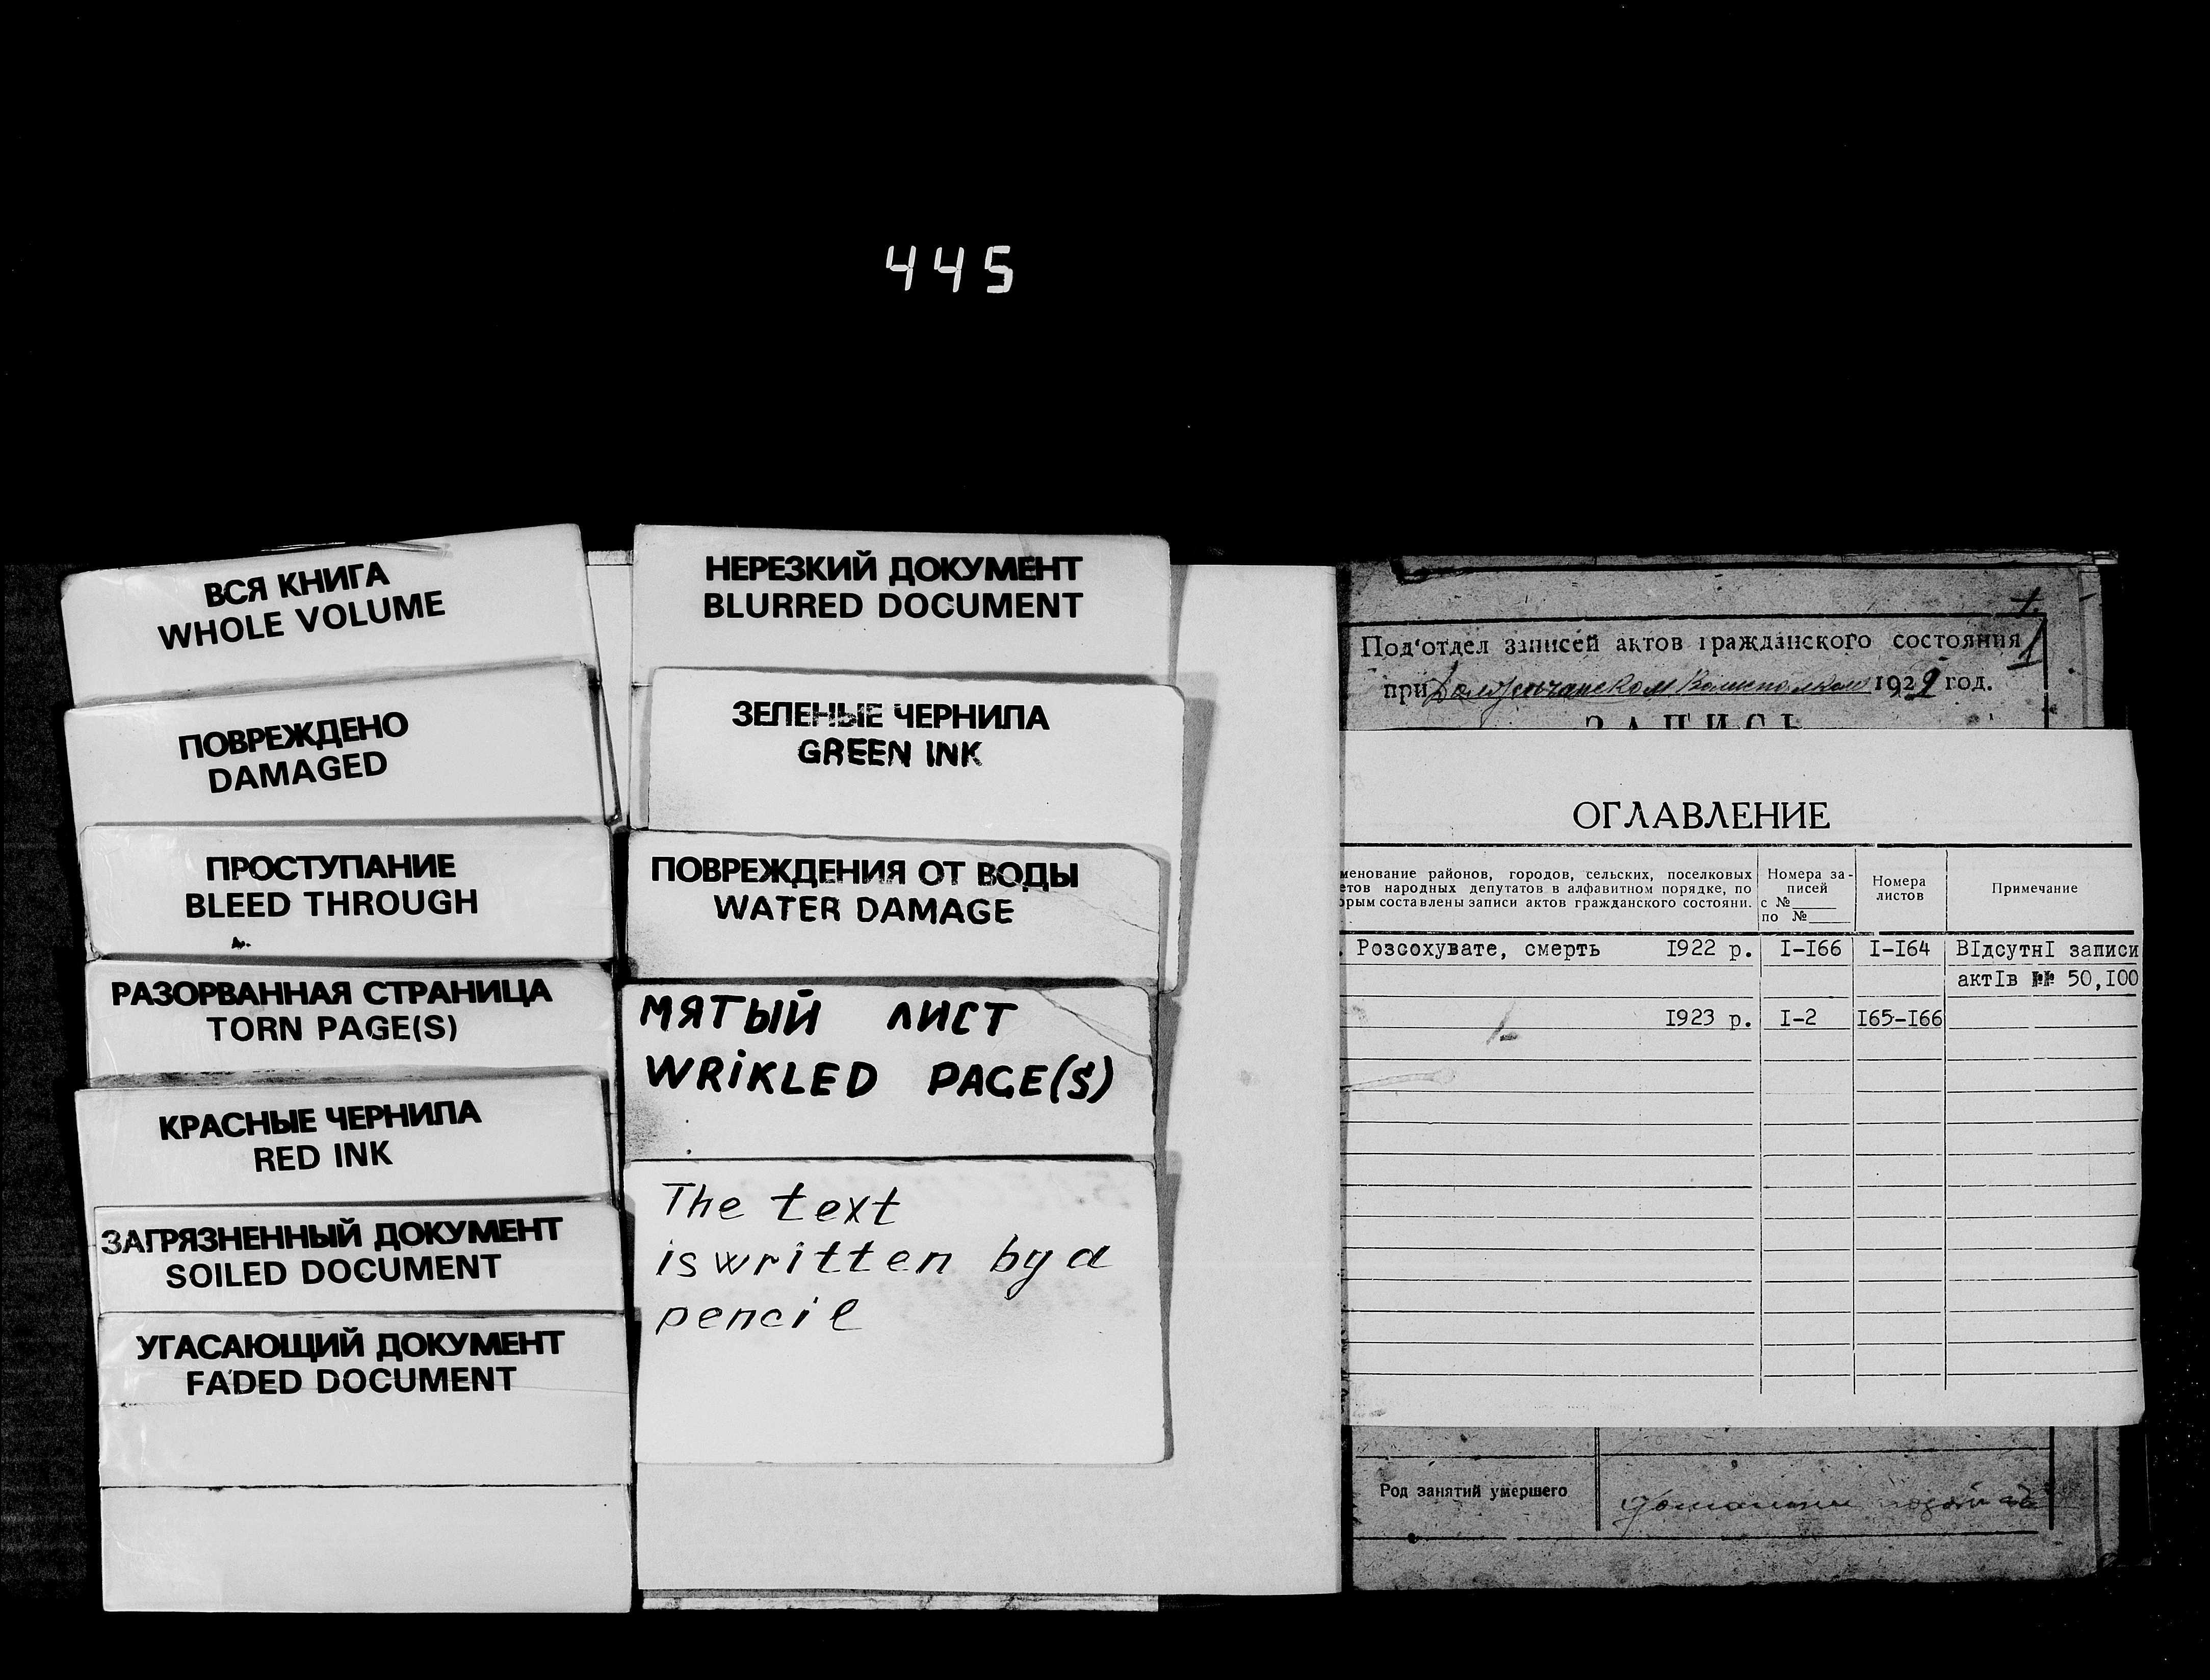 445
ВСЯ КНИГА
WHOLE VOLUME
ПОВРЕЖДЕНО
DAMAGED
ПРОСТУПАНИЕ
BLEED THROUGH
РАЗОРВАННАЯ СТРАНИЦА
TORN PAGE(S)
КРАСНЫЕ ЧЕРНИЛА
RED INK
ЗАГРЯЗНЕННЫЙ ДОКУМЕНТ
SOILED DOCUMENT
УГАСАЮЩИЙ ДОКУМЕНТ
FADED DOCUMENT
НЕРЕЗКИЙ ДОКУМЕНТ
BLURRED DOCUMENT
ЗЕЛЕНЫЕ ЧЕРНИЛА
GREEN INK
ПОВРЕЖДЕНИЯ ОТ ВОДЫ
WATER DAMAGE
МЯТЫЙ ЛИСТ
WRIKLED PAGE(S)
The text
is written by a
pencil
1
Под'отдел записей актов гражданского состояния
при 192 год.
ЗАПИСЬ
ОГЛАВЛЕНИЕ
менование районов, городов, сельских, поселковых
етов народных депутатов в алфавитном порядке, по
орым составлены записи актов гражданского состояни.
Номера за-
писей
с №
по №
Номера
листов
Примечание
. Розсохувате, смерть 1922 р. I-I66 I-I64 ВIдсутнI записи
актIв №№ 50,I00
I923 р. I-2 I65-I66
Род занятий умершего